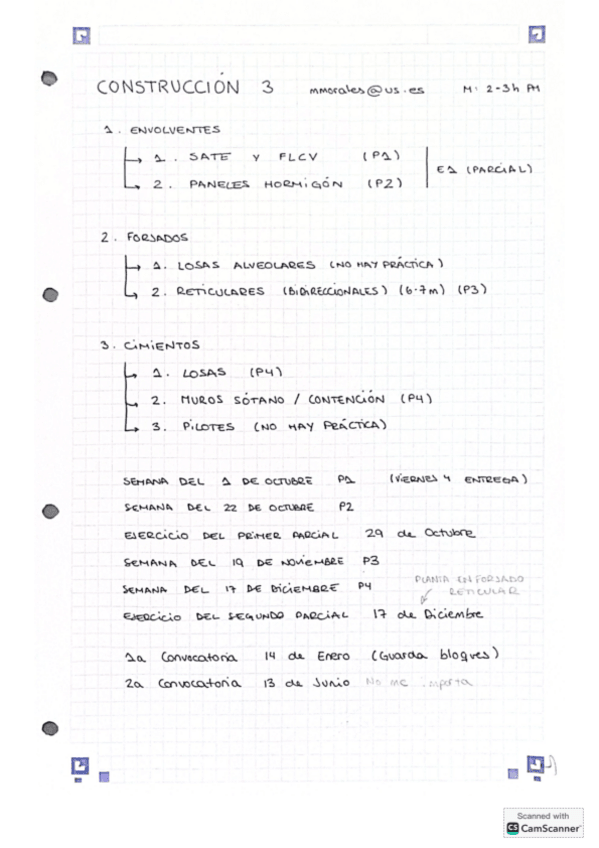 CONSTRUCCIÓN 3 mmorales@us.es M: 2-3h PM
1. ENVOLVENTES
1. SATE Y FLCV (P1)
2. PANELES HORMIGÓN (P2)
E1 (PARCIAL)
2. FORJADOS
1. LOSAS ALVEOLARES (NO HAY PRÁCTICA)
2. RETICULARES (BIDIRECCIONALES) (6-7m) (P3)
3. CIMIENTOS
1. LOSAS (P4)
2. MUROS SÓTANO / CONTENCIÓN (P4)
3. PILOTES (NO HAY PRÁCTICA)
SEMANA DEL 1 DE OCTUBRE P1 (VIERNES 4 ENTREGA)
SEMANA DEL 22 DE OCTUBRE P2
EJERCICIO DEL PRIMER PARCIAL 29 de Octubre
SEMANA DEL 19 DE NOVIEMBRE P3
SEMANA DEL 17 DE DICIEMBRE P4
PLANTA EN FORJADO
RETICULAR
EJERCICIO DEL SEGUNDO PARCIAL 17 de Diciembre
1a Convocatoria 14 de Enero (Guarda bloques)
2a Convocatoria 13 de Junio No me importa
Scanned with
CS CamScanner